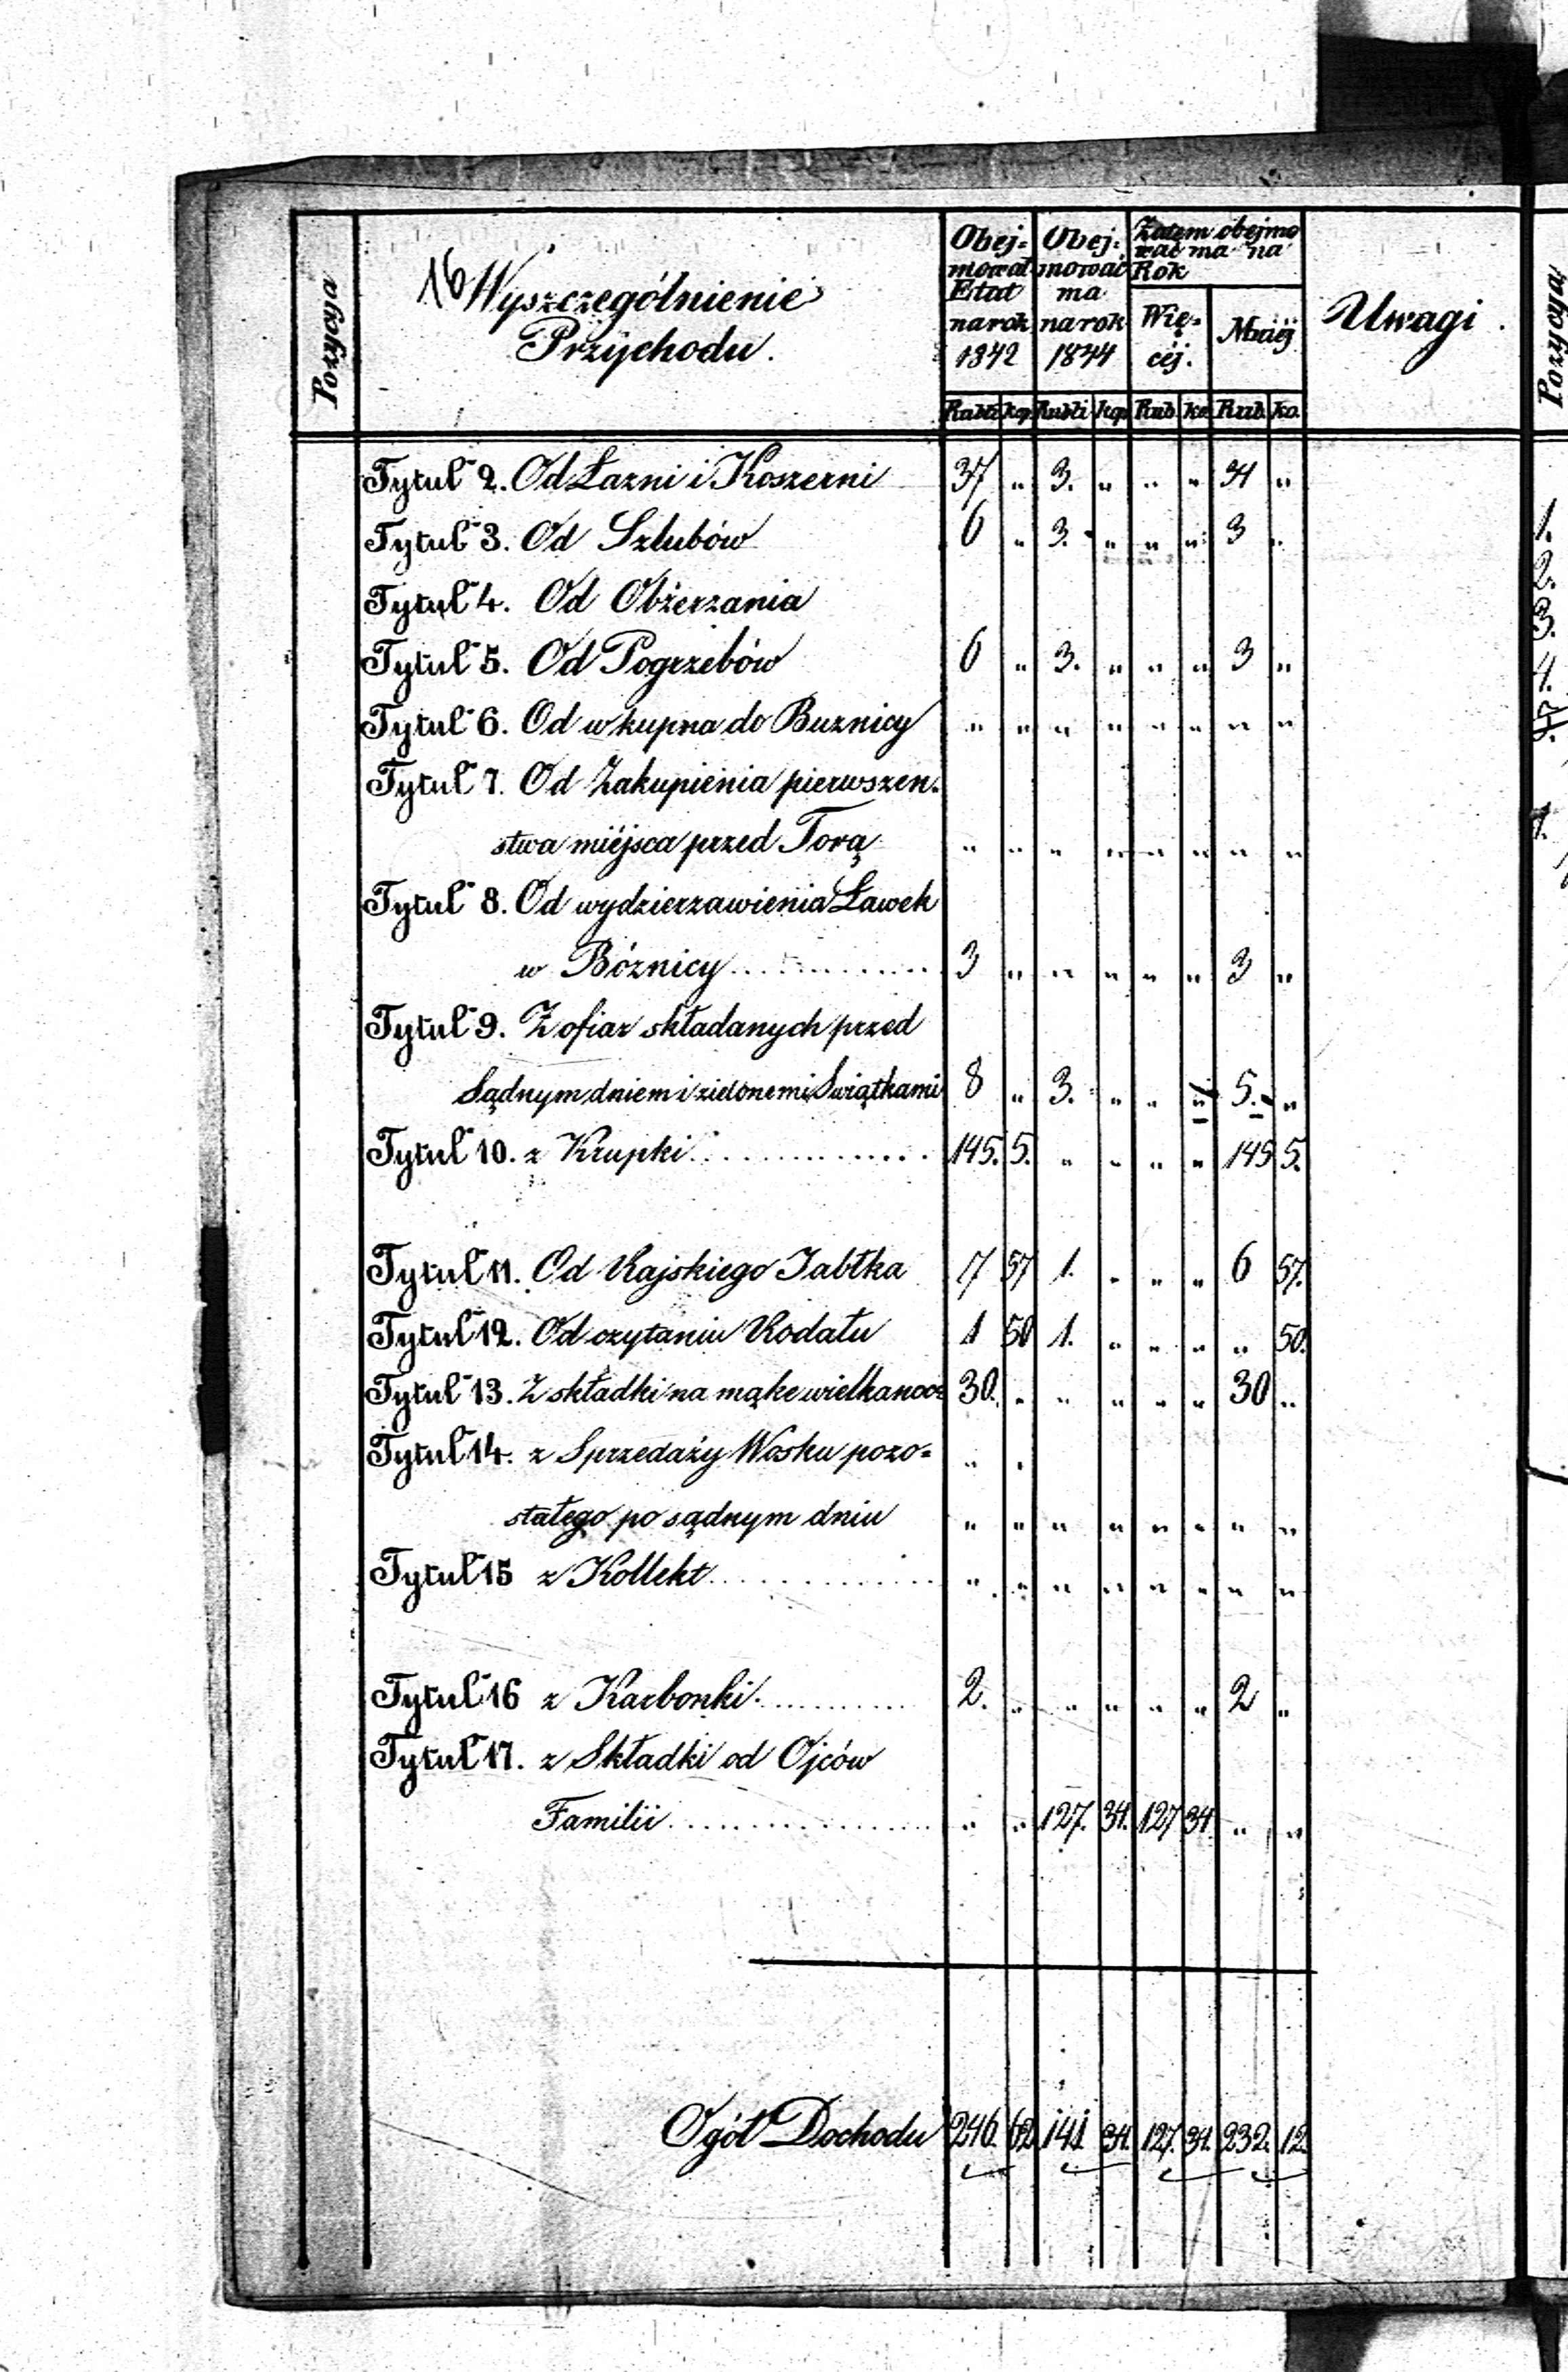 Pozycya
16 Wyszczególnienie
Przychodu.
Obej=
mował
Etat
na rok
1842
Obej:
mować
ma
na rok
1844
Zatem obejmo
wać ma na
Rok
Wię-
céj.
Mniéj
Uwagi.
Pozycya
Rubli kop Rubli kop Rub. ko Rub. ko.
Tytuł 2. Od Łazni i Koszerni 37 " 3. " " " 34 "
Tytuł 3. Od Szlubów 6 " 3. " " " 3 "
Tytuł 4. Od Obżerzania
Tytuł 5. Od Pogrzebów 6 " 3. " " " 3 "
Tytuł 6. Od wkupna do Buznicy " " " " " " " "
Tytuł 7. Od Zakupienia pierwszen.
stwa miéjsca przed Torą " " " " " " " "
Tytuł 8. Od wydzierzawienia Ławek
w Bóznicy 3 " " " " " 3 "
Tytuł 9. Z ofiar składanych przed
Sądnym dniem i zielonemi Swiątkami 8 " 3. " " " 5. "
Tytuł 10. z Krupki 145. 5. " " " " 145 5.
Tytuł 11. Od Rajskiego Jabłka 7 57 1. " " " 6 57.
Tytuł 12. Od czytaniu Rodału 1 50 1. " " " " 50.
Tytuł 13. Z składki na mąke wielkanoc 30. " " " " " 30 "
Tytuł 14. z Sprzedaży Wosku pozo= " "
stałego po sądnym dniu " " " " " " " "
Tytuł 15 z Kollekt " " " " " " " "
Tytuł 16 z Karbonki 2. " " " " " 2 "
Tytuł 17. z Składki od Ojców
Familii " " 127. 34. 127 34 " "
Ogół Dochodu 246. 62 141 34. 127. 34. 232. 12.
1.
2.
3.
4.
1.